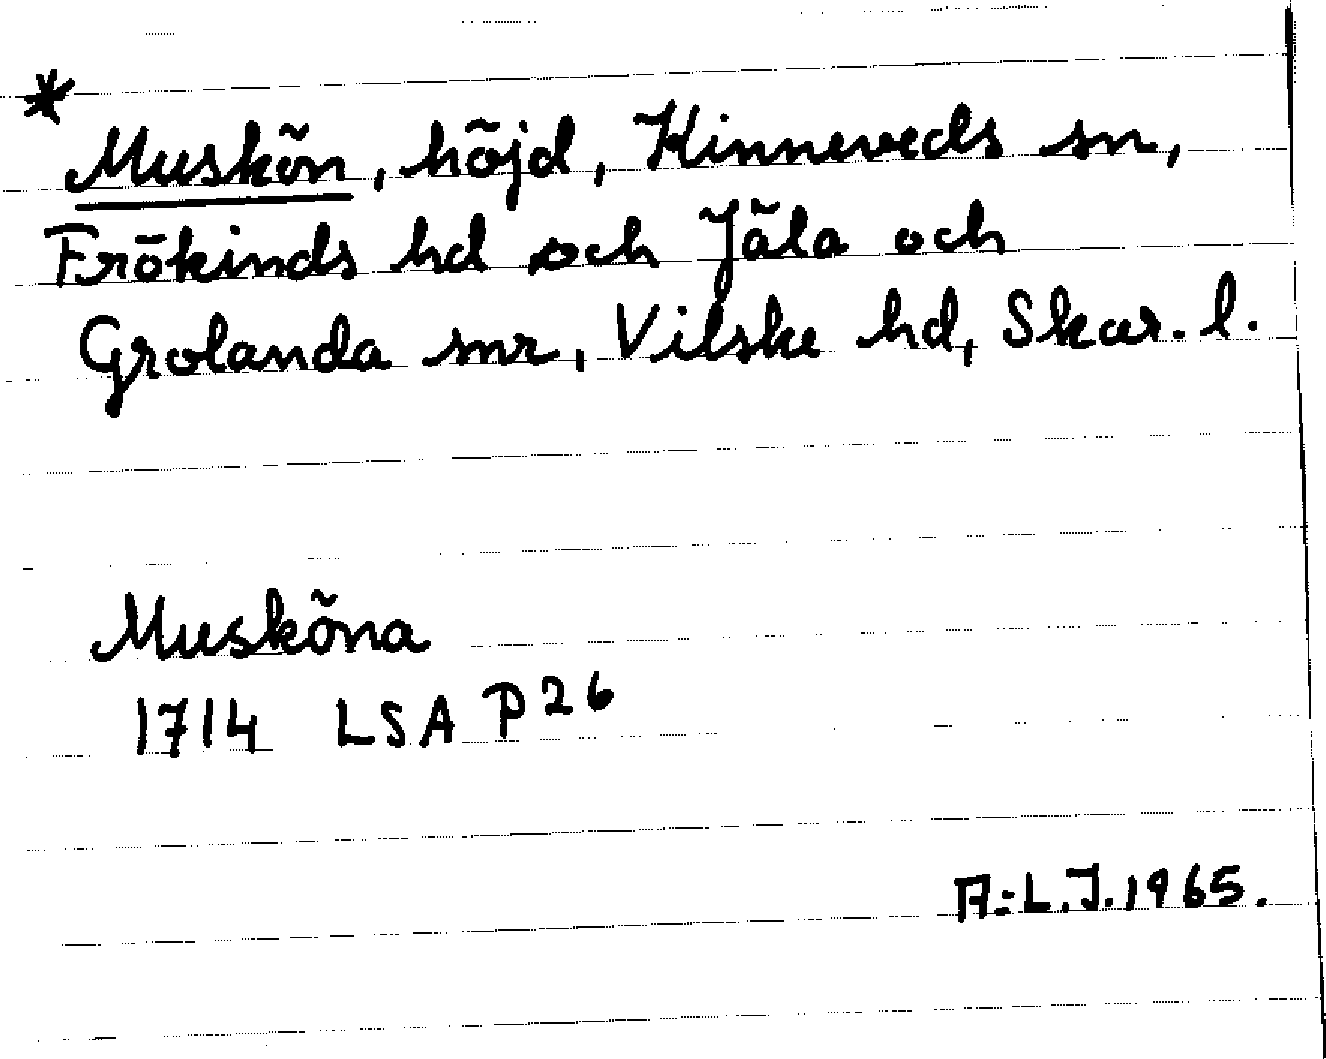 * Muskön, höjd, Kinneveds sn,
Frökinds hd och Jäla och
Grolanda snr, Vilske hd, Skar. l.
Musköna
1714 LSA P26
A:L.J. 1965.